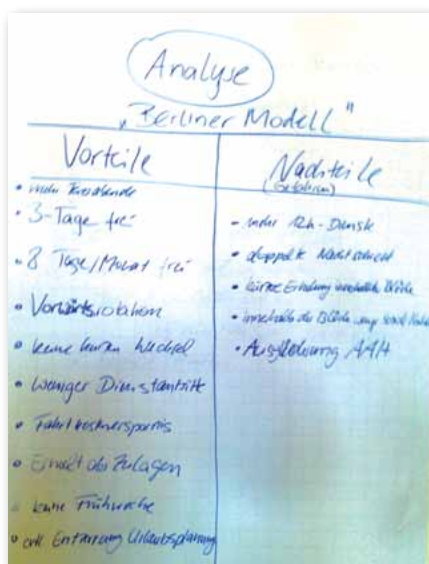 Analyse
„Berliner Modell"
Vorteile
• mehr
• 3-Tage frei
• 8 Tage/Monat frei
• Vorwärtsrotation
• keine kurzen Wechsel
• Weniger Dienstantritte
• Fahrtkostenersparnis
• Erhalt der Zulagen
• keine Frühwoche
• evtl. Entzerrung Urlaubsplanung
Nachteile
(Gefahren)
• mehr 12h-Dienste
• doppelte Nachtschicht
• kürzere Erholung innerhalb Blöcke
• innerhalb der Blöcke wenig
• Ausgliederung AAH